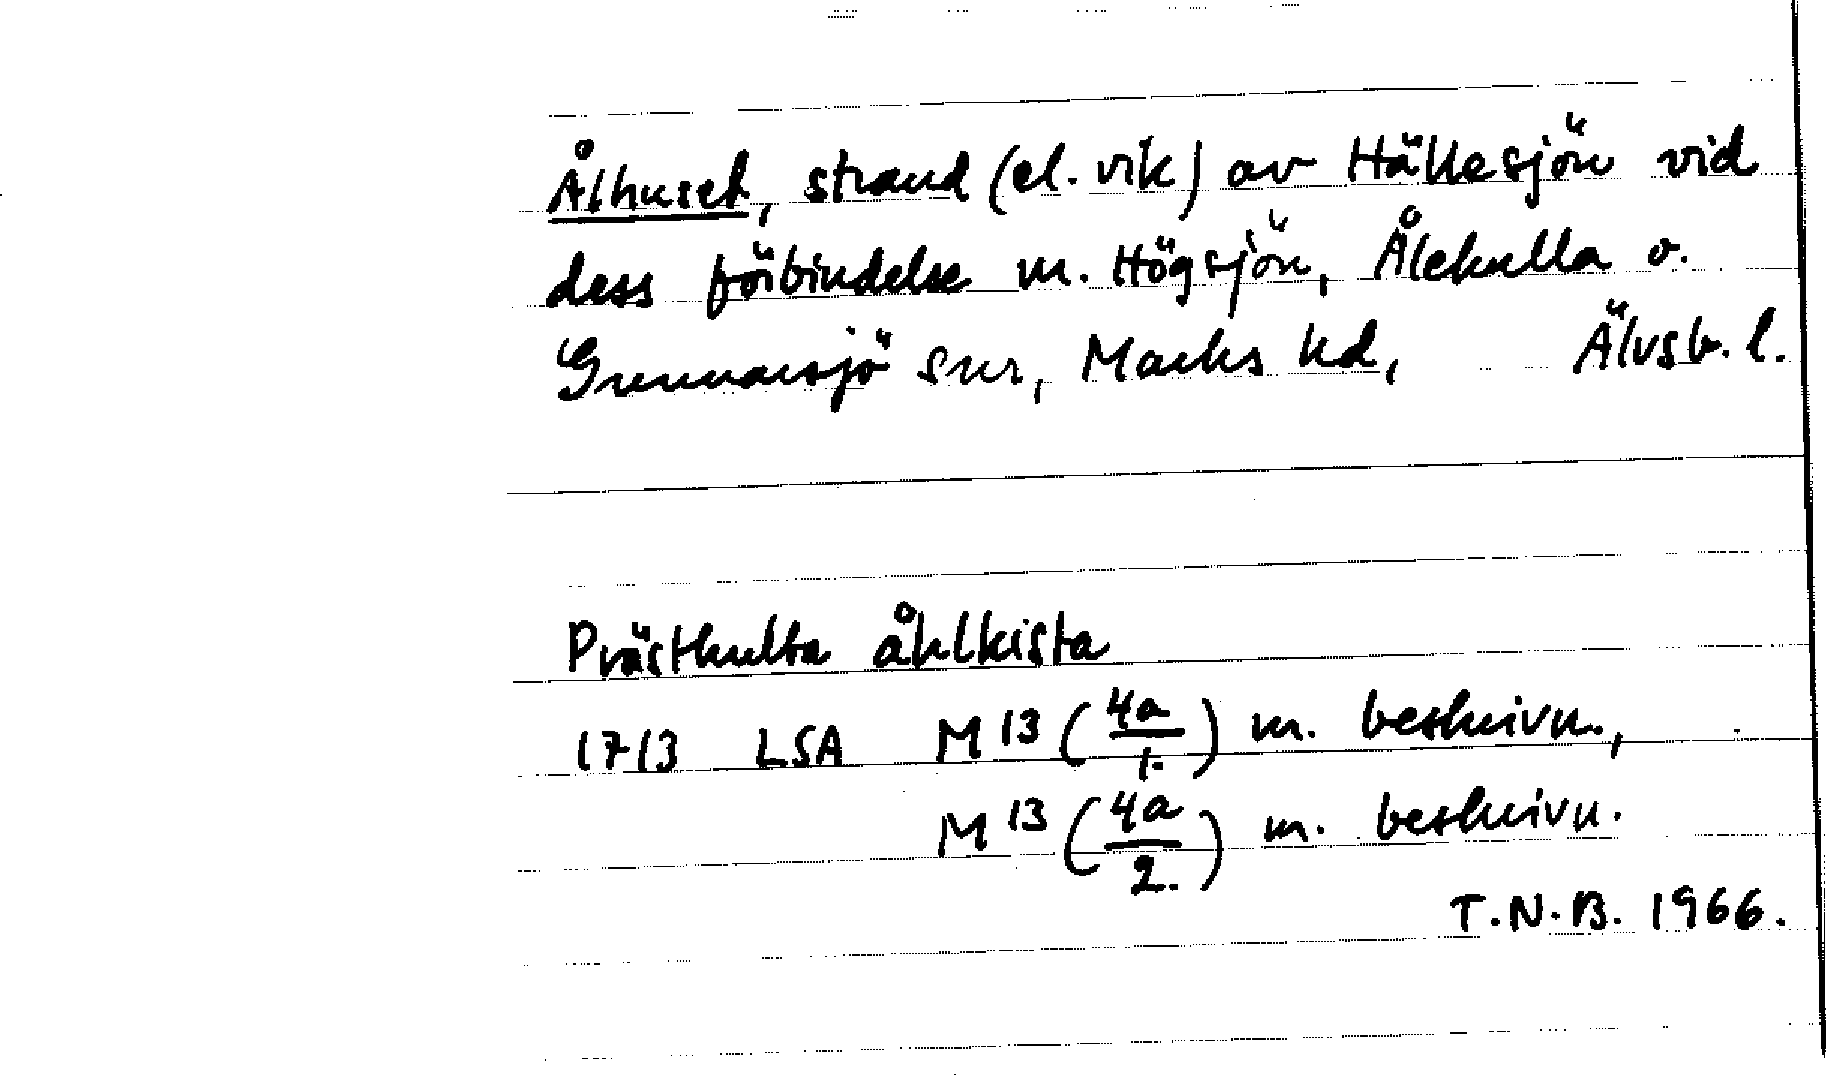 Ålhuset, strand (el. vik) av Hällesjön vid
dess förbindelse m. Högsjön, Ålekulla o.
Gunnarsjö snr, Marks hd, Älvsb. l.
Prästkulla åhlkista
1713 LSA M 13 (4a/1.) m. beskrivn.,
M 13 (4a/2.) m. beskrivn.
T.N.B. 1966.